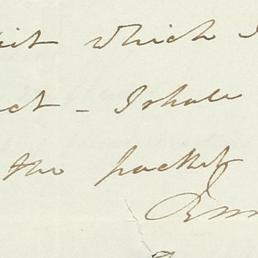 which I
ct - I shall
the packet